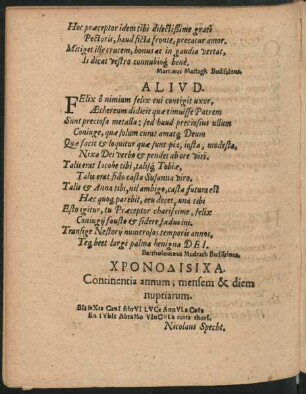 Hoc præceptor idem tibi dilectissime grati
Pectoris, haud ficta fronte, precatur amor.
Mitiget ille crucem, bonus ac in gaudia vertat,
Is dicat vestro connubioq; benè.
Martinus Budissinus.
ALIVD.
FElix ô nimium felix cui contigit uxor,
Æthereum didicit quæ timuisse Patrem
Sunt preciosa metalla; sed haud preciosius ullum
Coniuge, quæ solum curat amatq; Deum
Quæ facit & loquitur quæ sunt pia, justa, modesta,
Nixa Dei verbo & pendet ab ore viri.
Talis erat Iacobe tibi, talisq; Tobiæ,
Talis erat fido casta Susanna viro.
Talis & Anna tibi, nil ambigo, casta futura est
Hæc quoq; parebit, ceu decet, una tibi
Esto igitur, tu Præceptor charissime, felix
Coniugij fausto & sidere fædus ini.
Transige Nestorij numerosos temporis annos,
Teq; beet largi palma benigna DEI.
Bartholomæus Mudrach Budissinus.
ΧΡΟΝΟΔΙSΙΧΑ.
Continentia annum, mensem & diem
nuptiarum.
En tVbIs AbraMo VInCVLa
Nicolaus Specht.